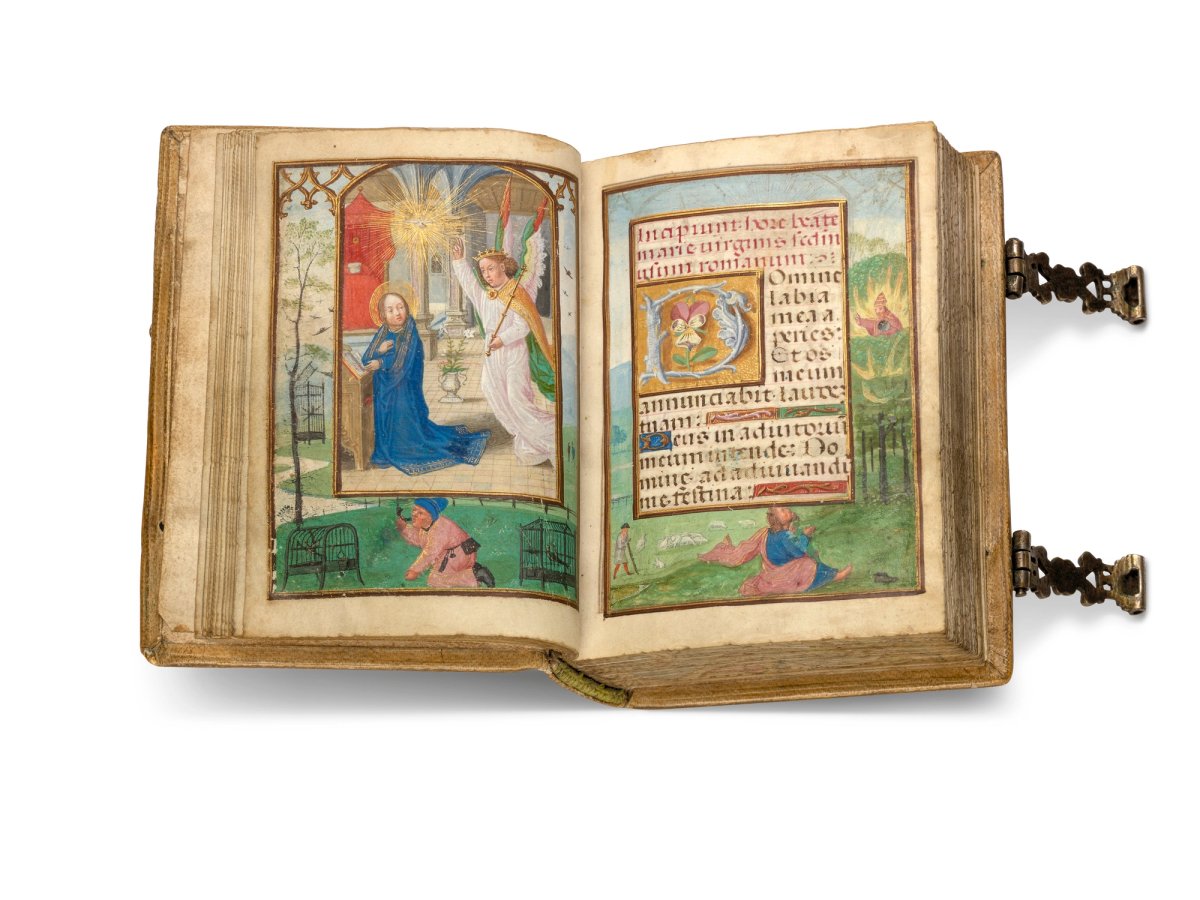 Incipiunt hore beate
marie virginis secun
usum romanum
Domine
labia
mea a
peries:
Et os
meum
annunciabit laude
tuam:
Deus in adiutoriu
meum intende: Do
mine ad adiuuandu
me festina: